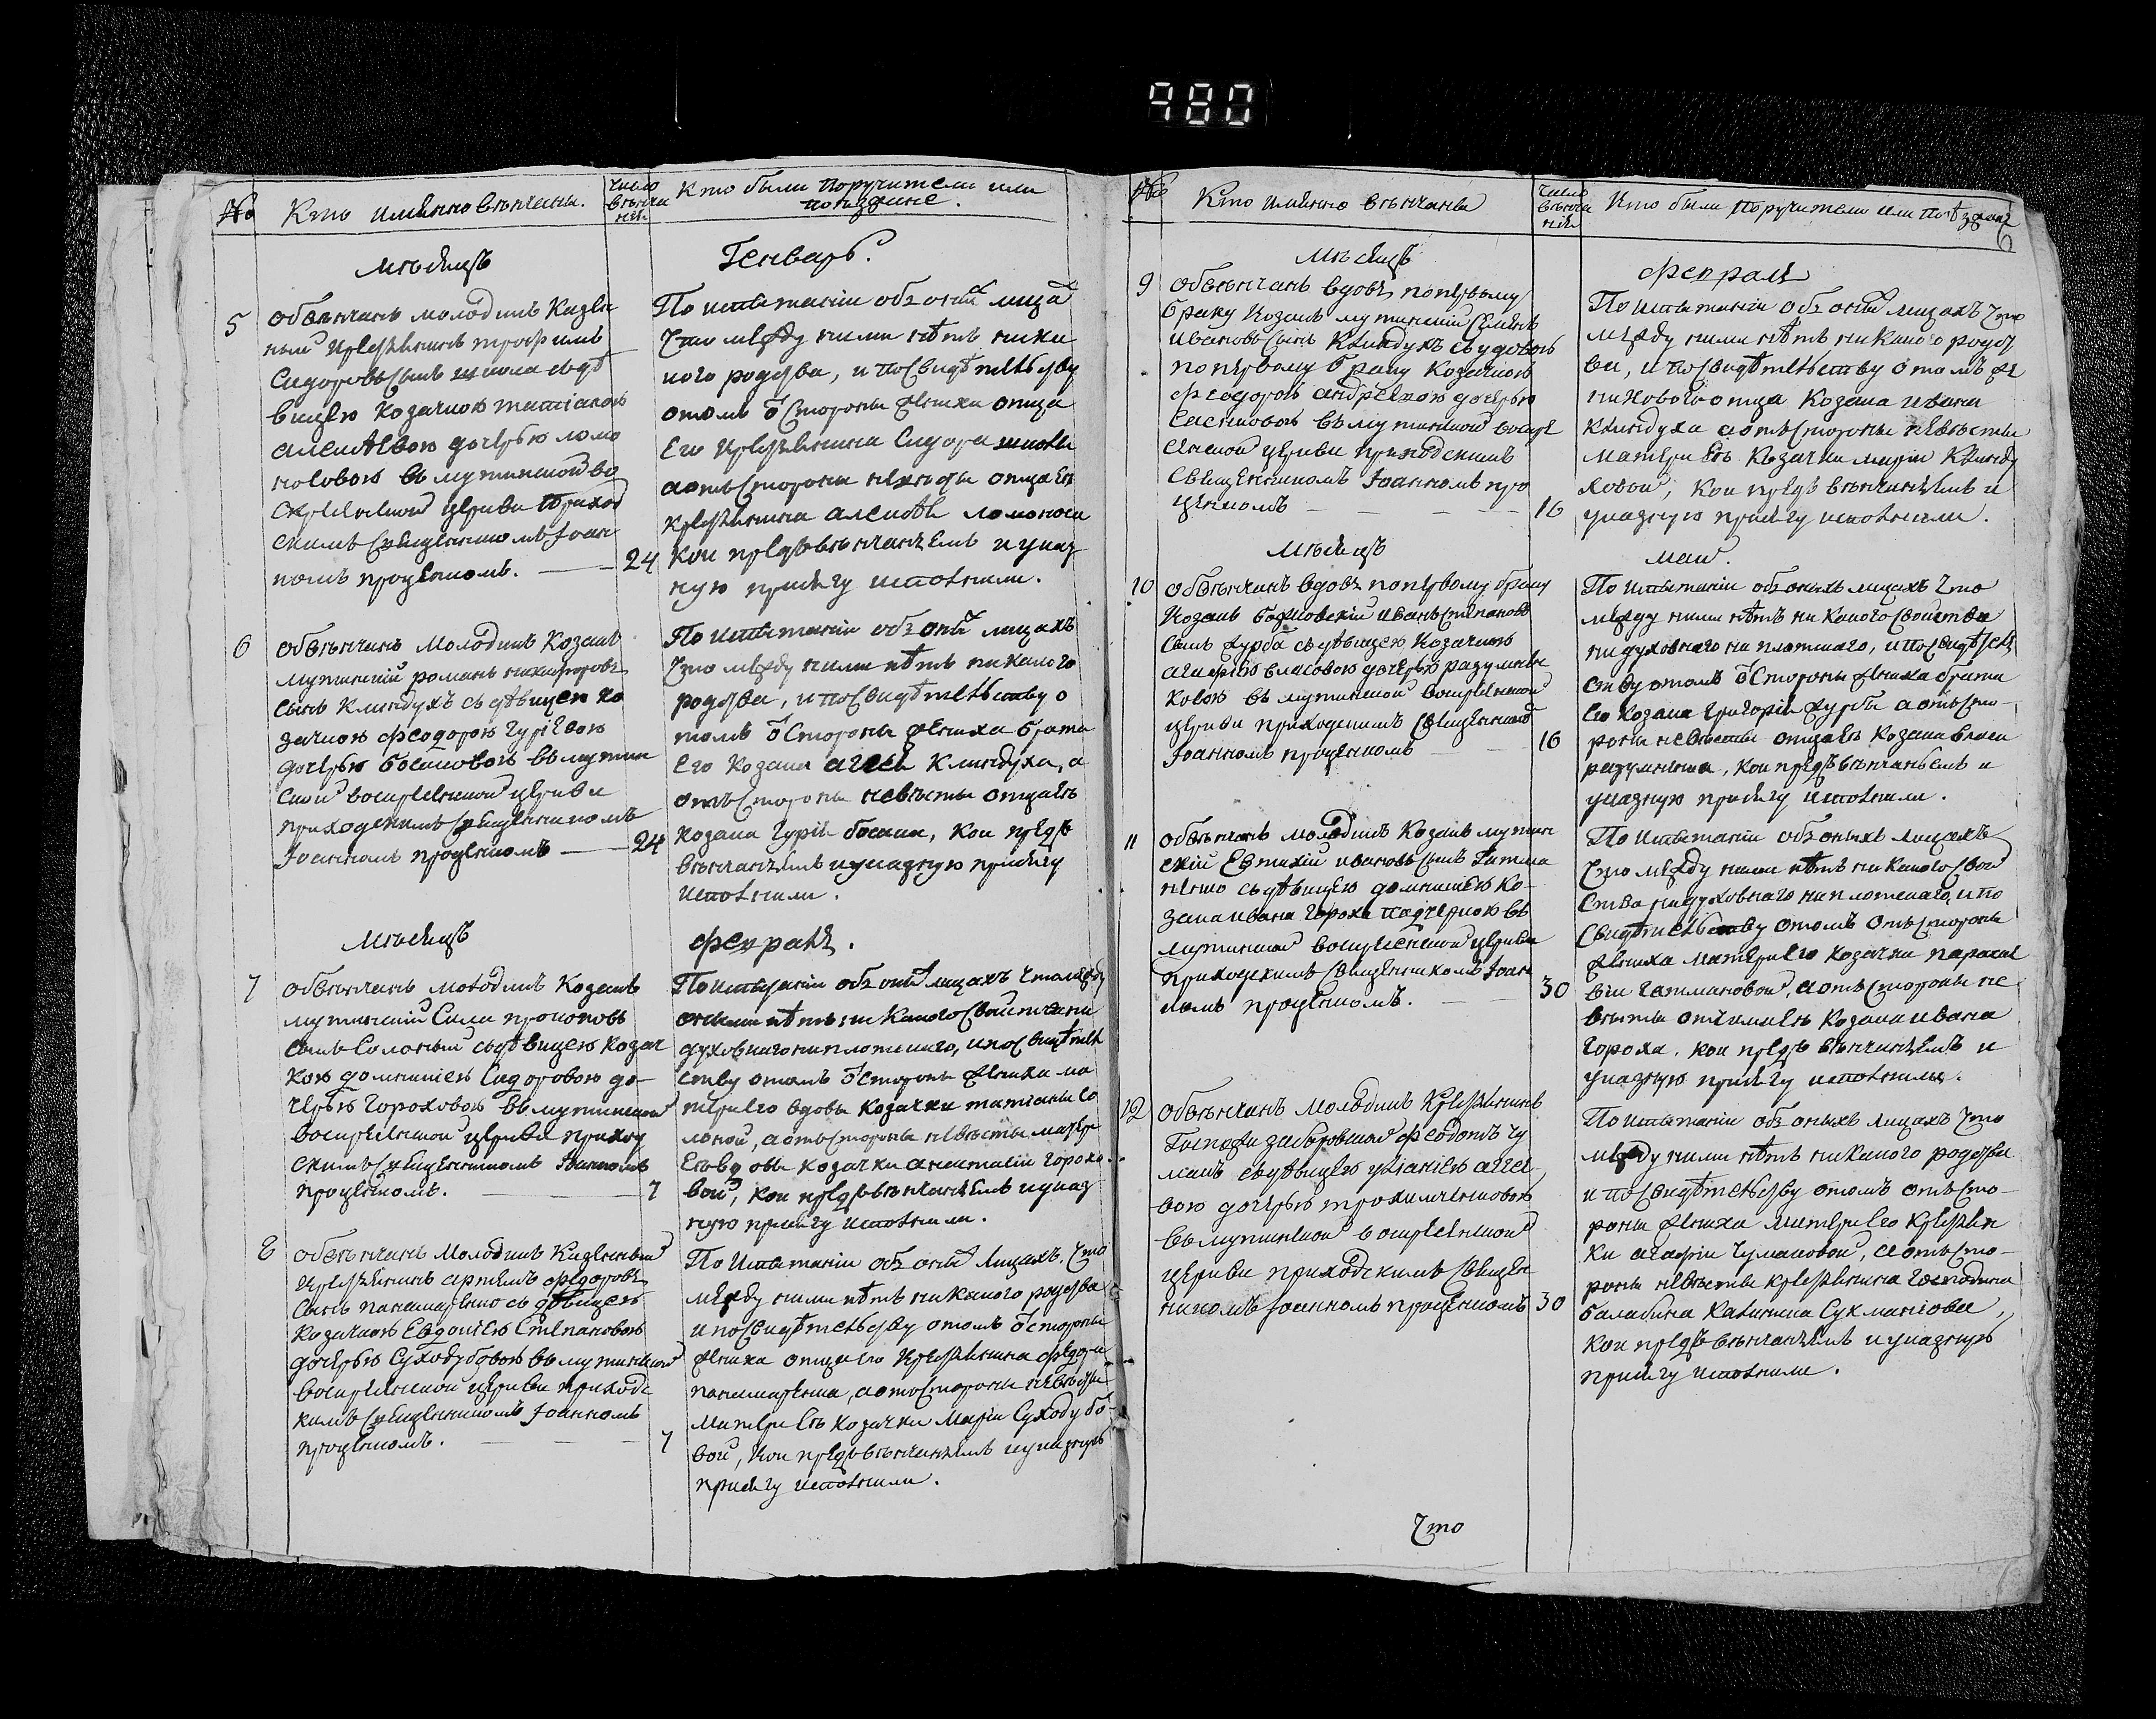 980
№ Кто имѧнно вѣнчаны. Число вѣнча нїя Кто были поручители или поѣзжане.
мѣсяцъ Генварь.
5 обвѣнчанъ молодикъ Казен
ный крестьянинъ трофимъ
Сидоровъ сынъ съдѣ
вицею козачкою татїаною
алексѣевою дочерью ломо
носовою въ мутинской во
скресенской церкви приход
скимъ священникомъ Іоан
номъ проценкомъ. 24
По испытанїи объ онихъ лицахъ
что между ними нѣтъ ника
кого родства, и по свидѣтельству
отомъ отъ стороны жениха отца
его крестьянина Сидора
а отъ стороны невѣсты отца ея
крестьянина алексѣя ломоноса
кои предъ вѣнчанїемъ и указ
ную присягу исполнили.
6 обвѣнчанъ молодикъ Козакъ
мутинскїй романъ никифоровъ
сынъ Клиндухъ съ дѣвицею ко
зачкою феодорою гурїевою
дочерью босаковою въ мутин
ской воскресенской церкви
приходскимъ священникомъ
Іоанномъ проценкомъ 24
По испытанїи объ онихъ лицахъ
что между ними нѣтъ никакого
родства, и по свидѣтельству о
томъ отъ стороны жениха брата
его козака агея Клиндуха, а
отъ стороны невѣсты отца ея
козака гурїя босака, кои предъ
вѣнчанїемъ и указную присягу
исполнили.
мѣсяцъ февраля.
7 обвѣнчанъ молодикъ Козакъ
мутинскїй Сила прокоповъ
сынъ Солоный съ дѣвицею козач
кою домникїею Сидоровою до-
черью гороховою въ мутинской
воскресенской церкви приход
скимъ священникомъ Іоанномъ
проценкомъ. 7
По испытанїи объ онихъ лицахъ что между
оными нѣтъ ни какого свойства ни
духовнаго ни плотскаго, и по свидѣтель
ству отомъ отъ стороны жениха ма
тери его вдовы козачки татїаны Со
лоной, а отъ стороны невѣсты матери
ея вдовы козачки анастасїи горохо-
вой, кои предъ вѣнчанїемъ и указ
ную присягу исполнили.
8 обвѣнчанъ молодикъ Казенный
крестьянинъ артемъ федоровъ
сынъ панамаренко съ дѣвицею
козачкою Евдокїею Степановою
дочерью Суходубовою въ мутинской
воскресенской церкви приходс
кимъ священникомъ Іоанномъ
проценкомъ. 7
По испытанїи объ онихъ лицахъ что
между ними нѣтъ никакого родства
и по свидѣтельству отомъ отъ стороны
жениха отца его крестьянина федора
панамаренка, а отъ стороны невѣсты
матери ея козачки Марїи Суходубо-
вой, кои предъ вѣнчанїемъ и указную
присягу исполнили.
№ Кто имѧнно вѣнчаны Число вѣнча нїя Кто были поручители или поѣзжане
6
мѣсяцъ февраля
9 обвѣнчанъ вдовъ по первому
браку козакъ мутинскїй Семенъ
ивановъ сынъ Клиндухъ съ удовою
по первому браку козачкою
феодорою андреевою дочерью
въ мутинской воскре
сенской церкви приходскимъ
священникомъ Іоанномъ про
ценкомъ 16
По испытанїи объ онихъ лицахъ что
между ними нѣтъ никакого родст
ва, и по свидѣтельству отомъ же
ниховаго отца козака ивана
Клиндуха а отъ стороны невѣсты
матери ея козачки марїи Клинду
ховой, кои предъ вѣнчанїемъ и
указную присягу исполнили.
мѣсяцъ маи.
10 обвѣнчанъ вдовъ по первому браку
козакъ иванъ Степановъ
сынъ журба съ дѣвицею козачкою
агафїею власовою дочерью разумен
ковою въ мутинской воскресенской
церкви приходскимъ священникомъ
Іоанномъ проценкомъ 16
По испытанїи объ онихъ лицахъ что
между ними нѣтъ ни какого свойства
ни духовнаго ни плотскаго, и по свидѣтель
ству отомъ отъ стороны жениха брата
его козака григорїя журбы а отъ сто-
роны невѣсты отца ея козака власа
разуменка, кои предъ вѣнчанїемъ и
указную присягу исполнили.
11 обвѣнчанъ молодикъ Козакъ мутин
скїй Евтихїй ивановъ сынъ Гатма
ненко съ дѣвицею домникїею ко-
зака ивана гороха падчеркою въ
мутинской воскресенской церкви
приходскимъ священникомъ Іоан
номъ проценкомъ. 30
По испытанїи объ оныхъ лицахъ
что между ними нѣтъ никакого свой
ства ни духовнаго ни плотскаго, и по
свидѣтельству отомъ отъ стороны
жениха матери его козачки параске
вїи гатмановой, а отъ стороны не
вѣсты отчима ея козака ивана
гороха. кои предъ вѣнчанїемъ и
указную присягу исполнили.
12 обвѣнчанъ молодикъ крестьянинъ
Госпожи забаровской феодотъ чу
макъ съ дѣвицею улїанїею аггее
вою дочерью трохименковою
въ мутинской воскресенской
церкви приходскимъ священ
никомъ Іоанномъ проценкомъ 30
По испытанїи объ оныхъ лицахъ что
между ними нѣтъ никакого родства
и по свидѣтельству отомъ отъ сто-
роны жениха матери его крестьян
ки агафїи чумаковой, а отъ сто-
роны невѣсты крестьянина господина
балабина Калиника Сукманова,
кои предъ вѣнчанїемъ и указную
присягу исполнили.
что